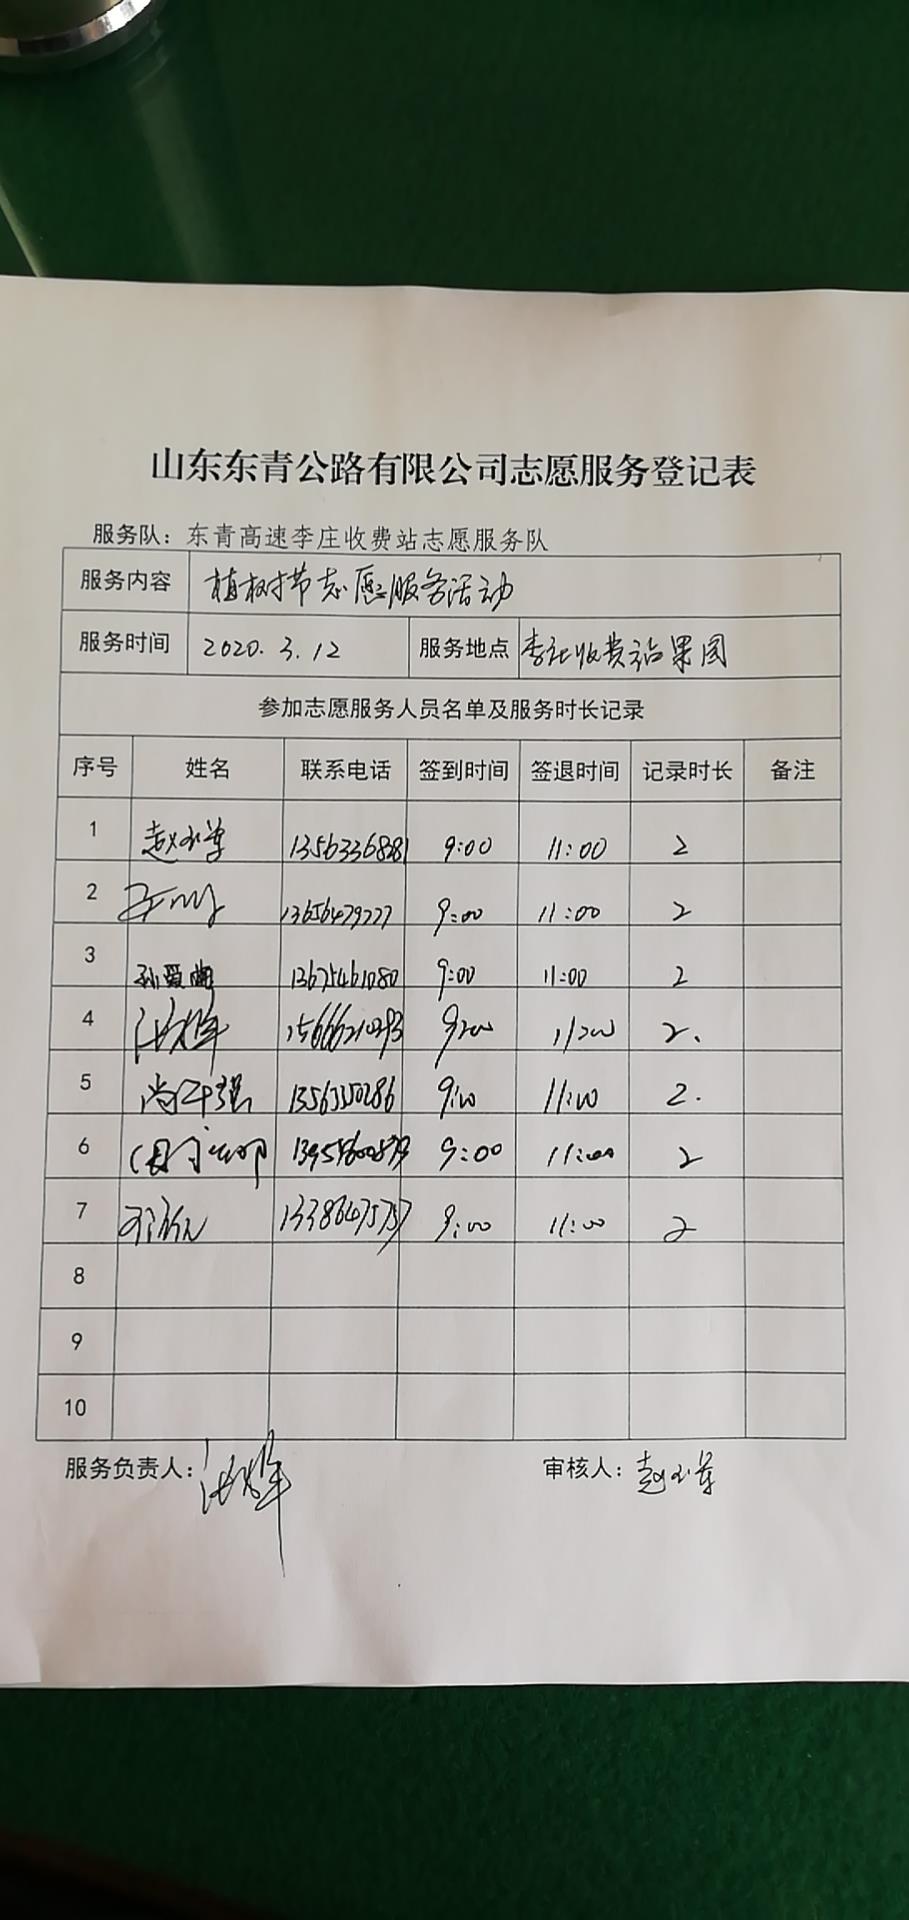 山东东青公路有限公司志愿服务登记表
服务队：东青高速李庄收费站志愿服务队
服务内容 植树节志愿服务活动
服务时间 2020.3.12 服务地点 李庄收费站果园
参加志愿服务人员名单及服务时长记录
序号 姓名 联系电话 签到时间 签退时间 记录时长 备注
1 13563368281 9:00 11:00 2
2 13656479277 9:00 11:00 2
3 13675461080 9:00 11:00 2
4 9:00 11:00 2.
5 尚 强 13563350286 9:00 11:00 2.
6 9:00 11:00 2
7 13386475757 9:00 11:00 2
8
9
10
服务负责人： 审核人：赵